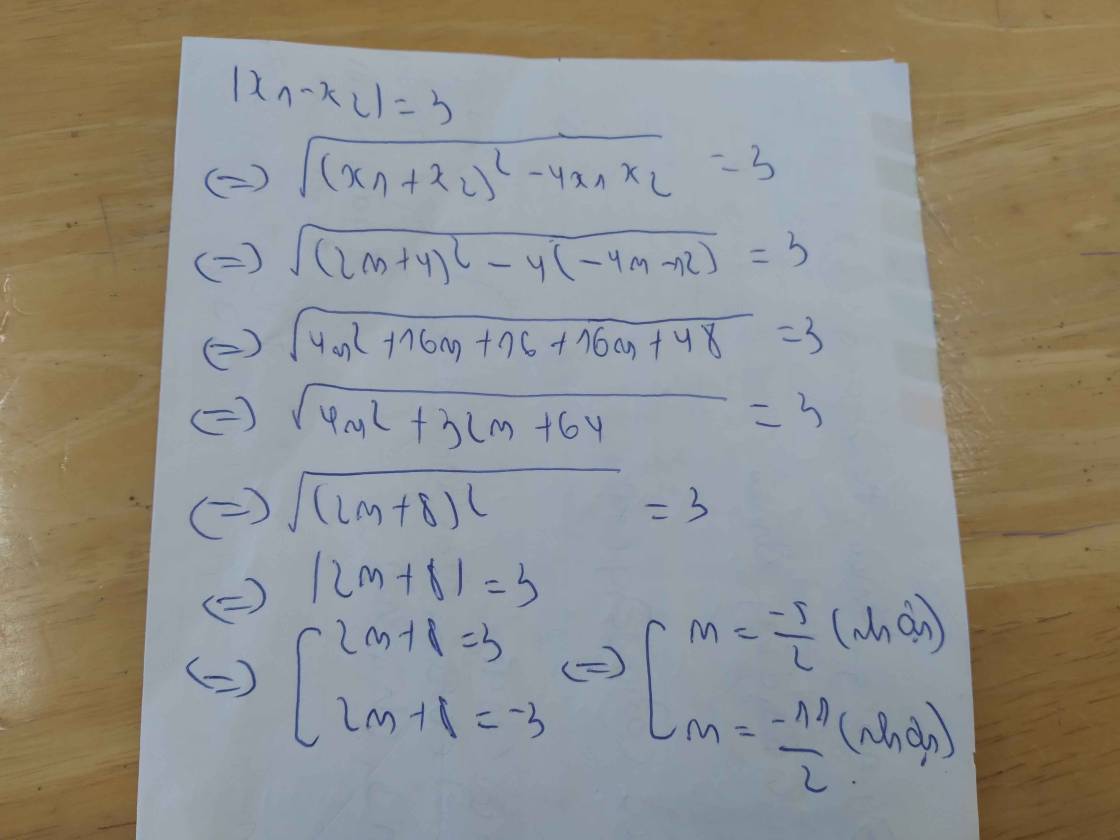 |x₁-x₂| = 3
(=) √((x₁+x₂)² -4x₁x₂) = 3
(=) √((2m+4)² - 4(-4m-12)) = 3
(=) √(4m² +16m +16 +16m +48) = 3
(=) √(4m² +32m +64) = 3
(=) √((2m+8)²) = 3
(=) |2m+8| = 3
(=) [ 2m+8 = 3 (=) [ m = -5/2 (nhận)
2m+8 = -3 m = -11/2 (nhận)